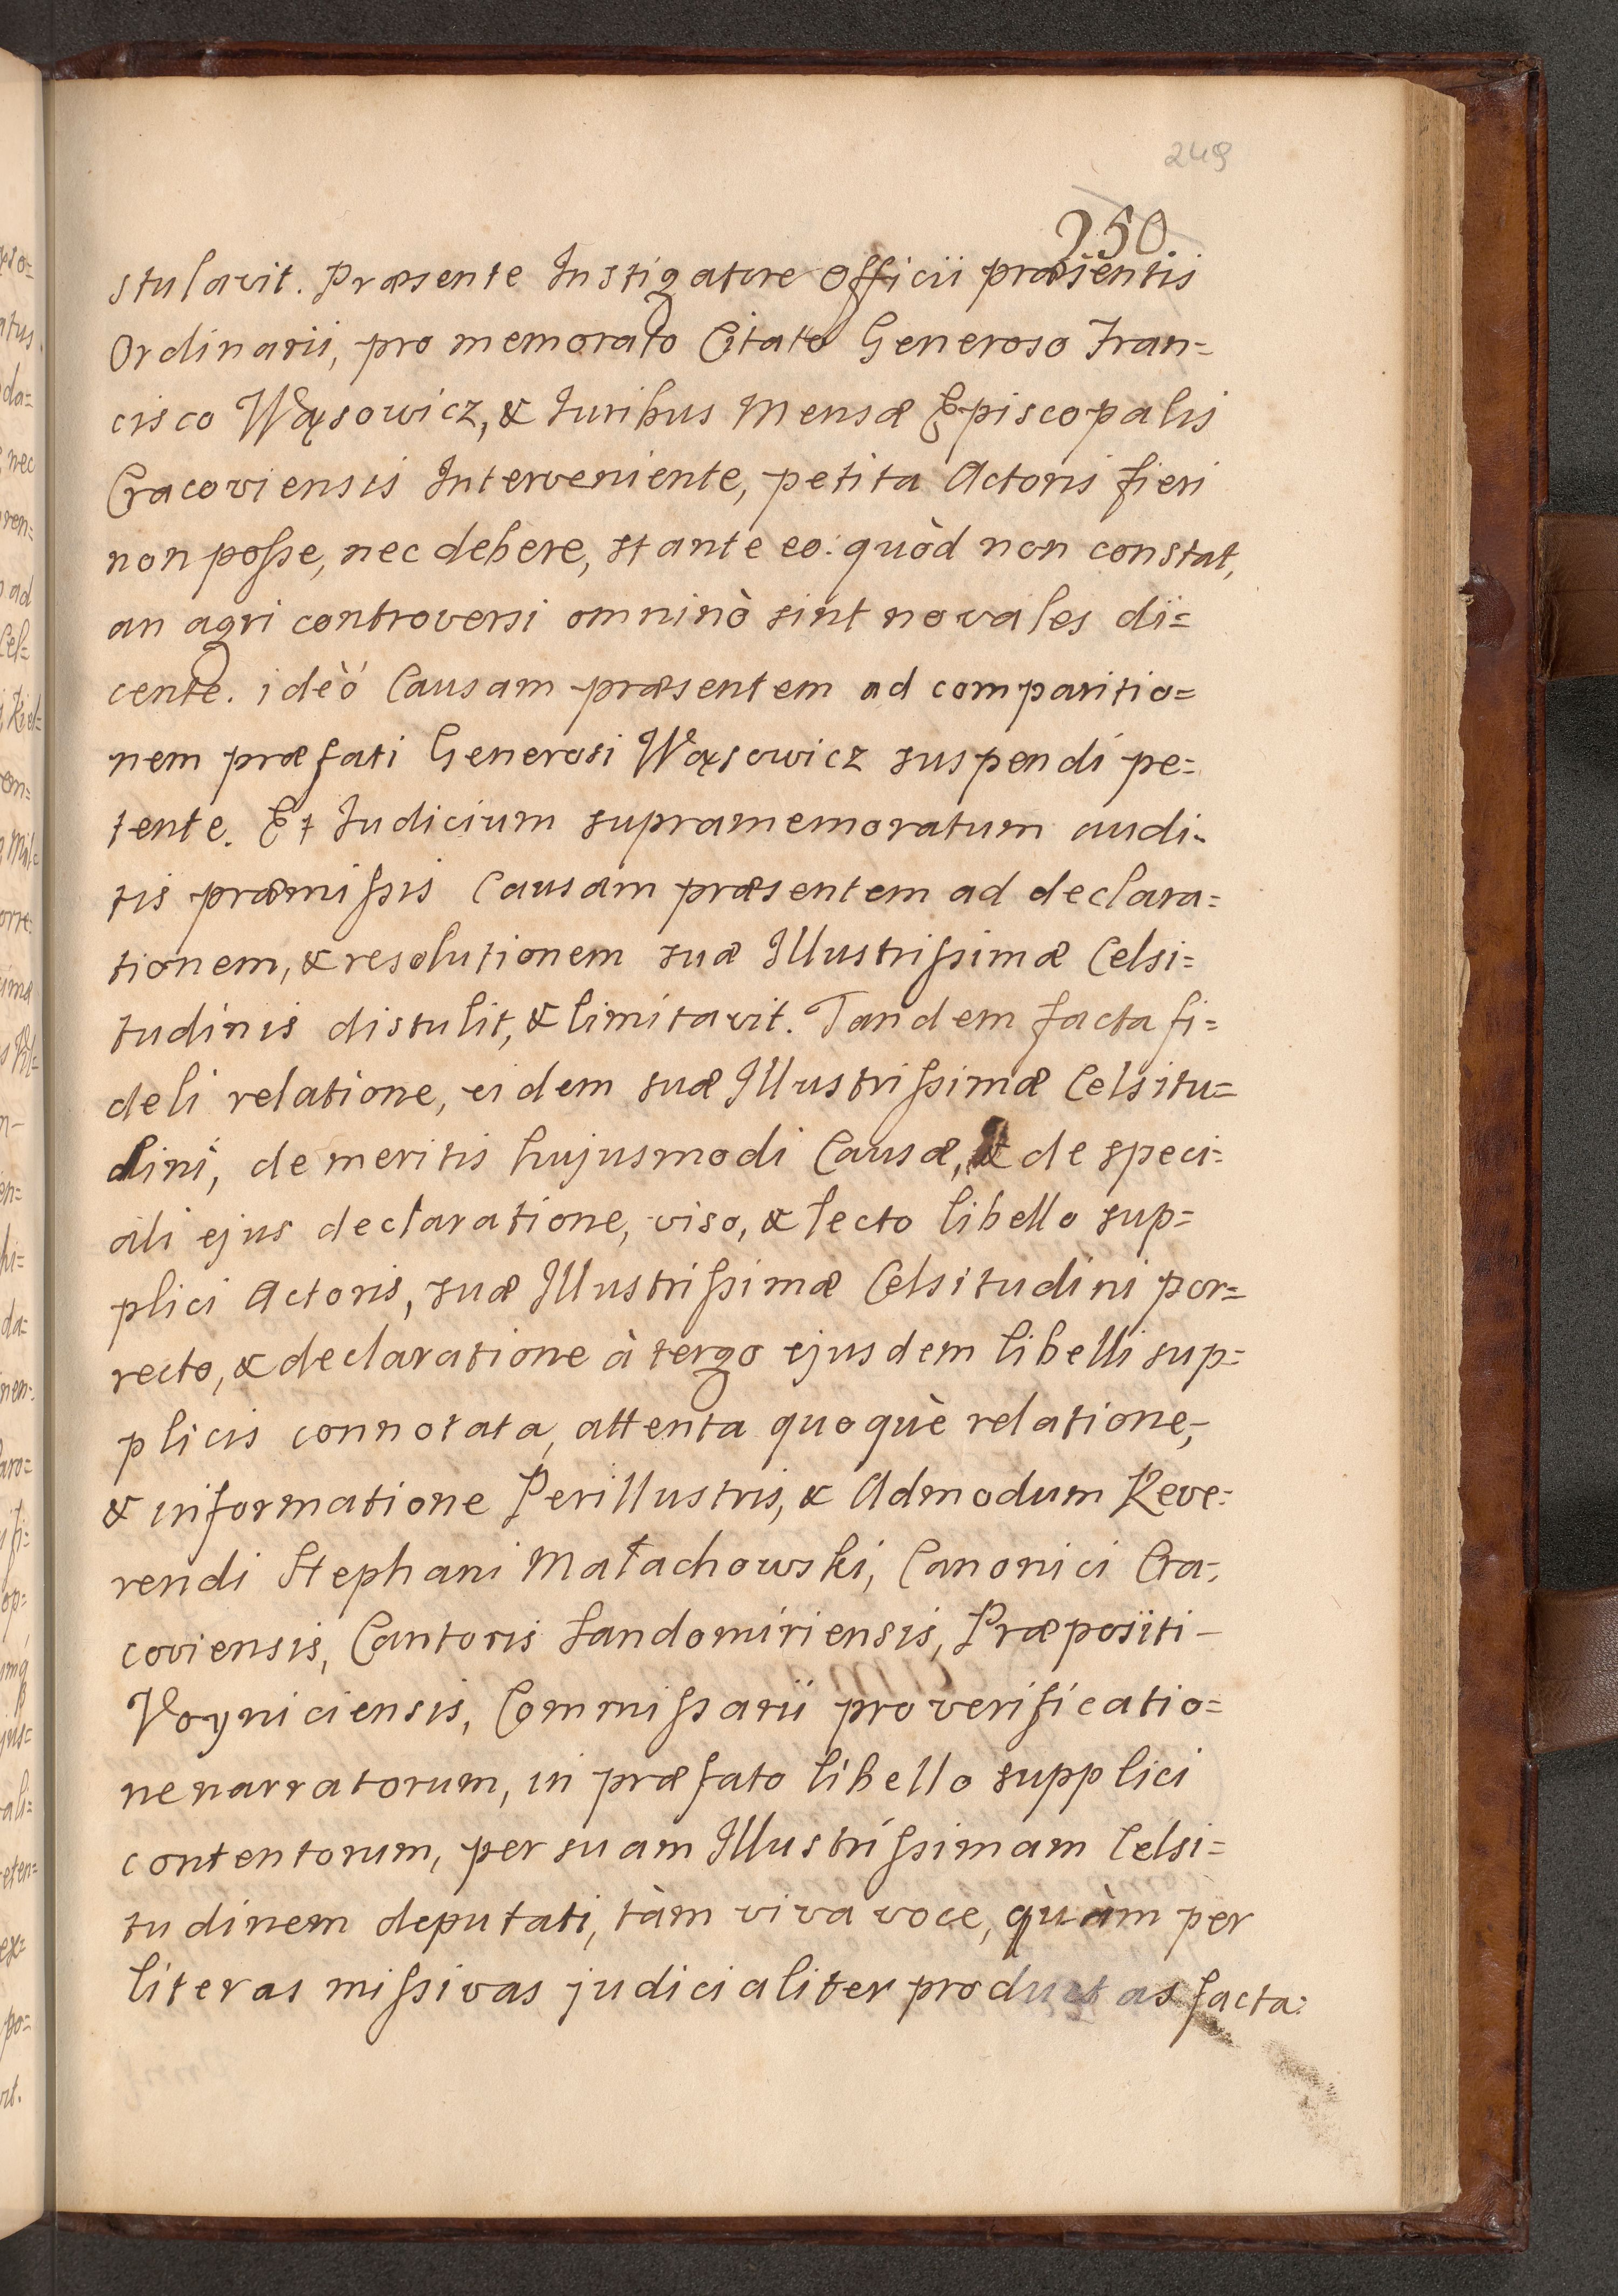 249
250.
stulavit. Præsente Instigatore Officii præsentis
Ordinarii, pro memorato Citato Generoso Fran=
cisco Wąsowicz, & Juribus Mensæ Episcopalis
Cracoviensis Interveniente, petita Actoris fieri
non poſse, nec debere, stante eo: quòd non constat,
an agri controversi omninò sint novales di=
cente. ideò Causam præsentem ad comparitio=
nem præfati Generosi Wąsowicz suspendi pe=
tente. Et Judicium supramemoratum audi=
tis præmiſsis Causam præsentem ad declara=
tionem, & resolutionem suæ Illustriſsimæ Celsi=
tudinis distulit, & limitavit. Tandem facta fi=
deli relatione, eidem suæ Illustriſsimæ Celsitu=
dini, de meritis hujusmodi Causæ, & de speci=
ali ejus declaratione, viso, & lecto libello sup=
plici Actoris, suæ Illustriſsimæ Celsitudini por=
recto, & declaratione à tergo ejusdem libelli sup=
plicis connotata, attenta quoquè relatione,
& informatione Perillustris, & Admodum Reve=
rendi Stephani Małachowski, Canonici Cra=
coviensis, Cantoris Sandomiriensis, Præpositi
Voyniciensis, Commiſsarii pro verificatio=
ne narratorum, in præfato libello supplici
contentorum, per suam Illustriſsimam Celsi=
tudinem deputati, tàm viva voce, quàm per
literas miſsivas judicialiter productas facta: